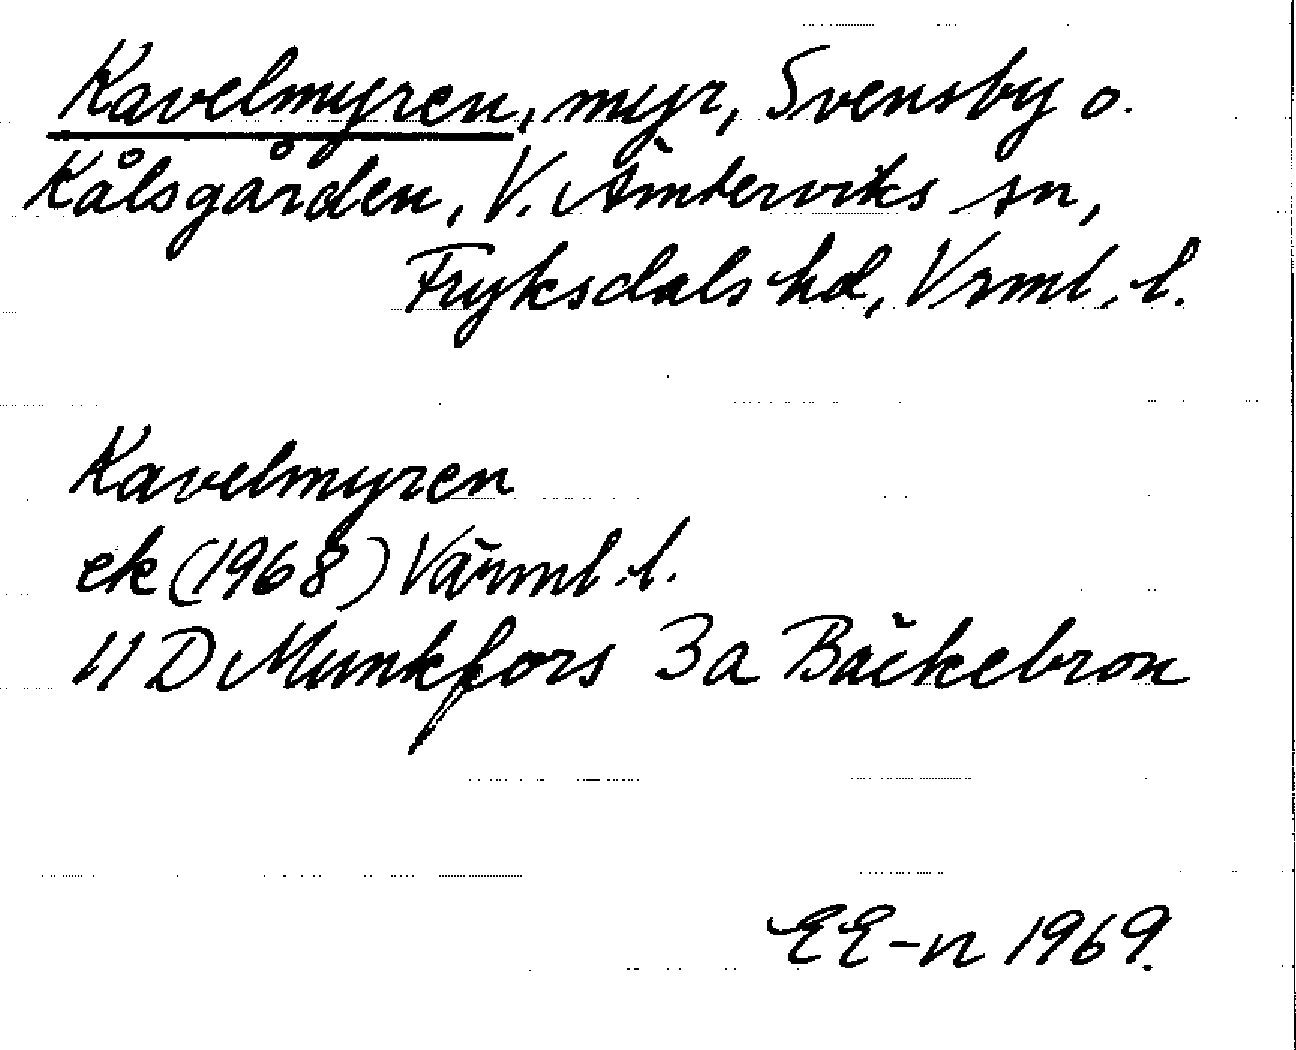 Kavelmyren, myr, Svensby o.
Kålsgården, V. Ämterviks sn,
Fryksdals hd, Vrml. l.
Kavelmyren
ek (1968) Värml. l.
11 D Munkfors 3a Bäckebron
EE-n 1969.